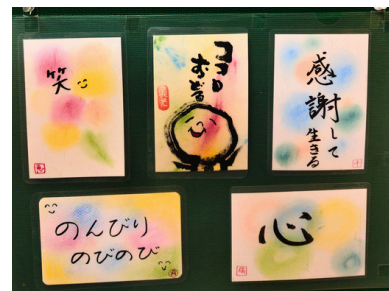 笑
ココロ
おどる
感謝して
生きる
のんびり
のびのび
心